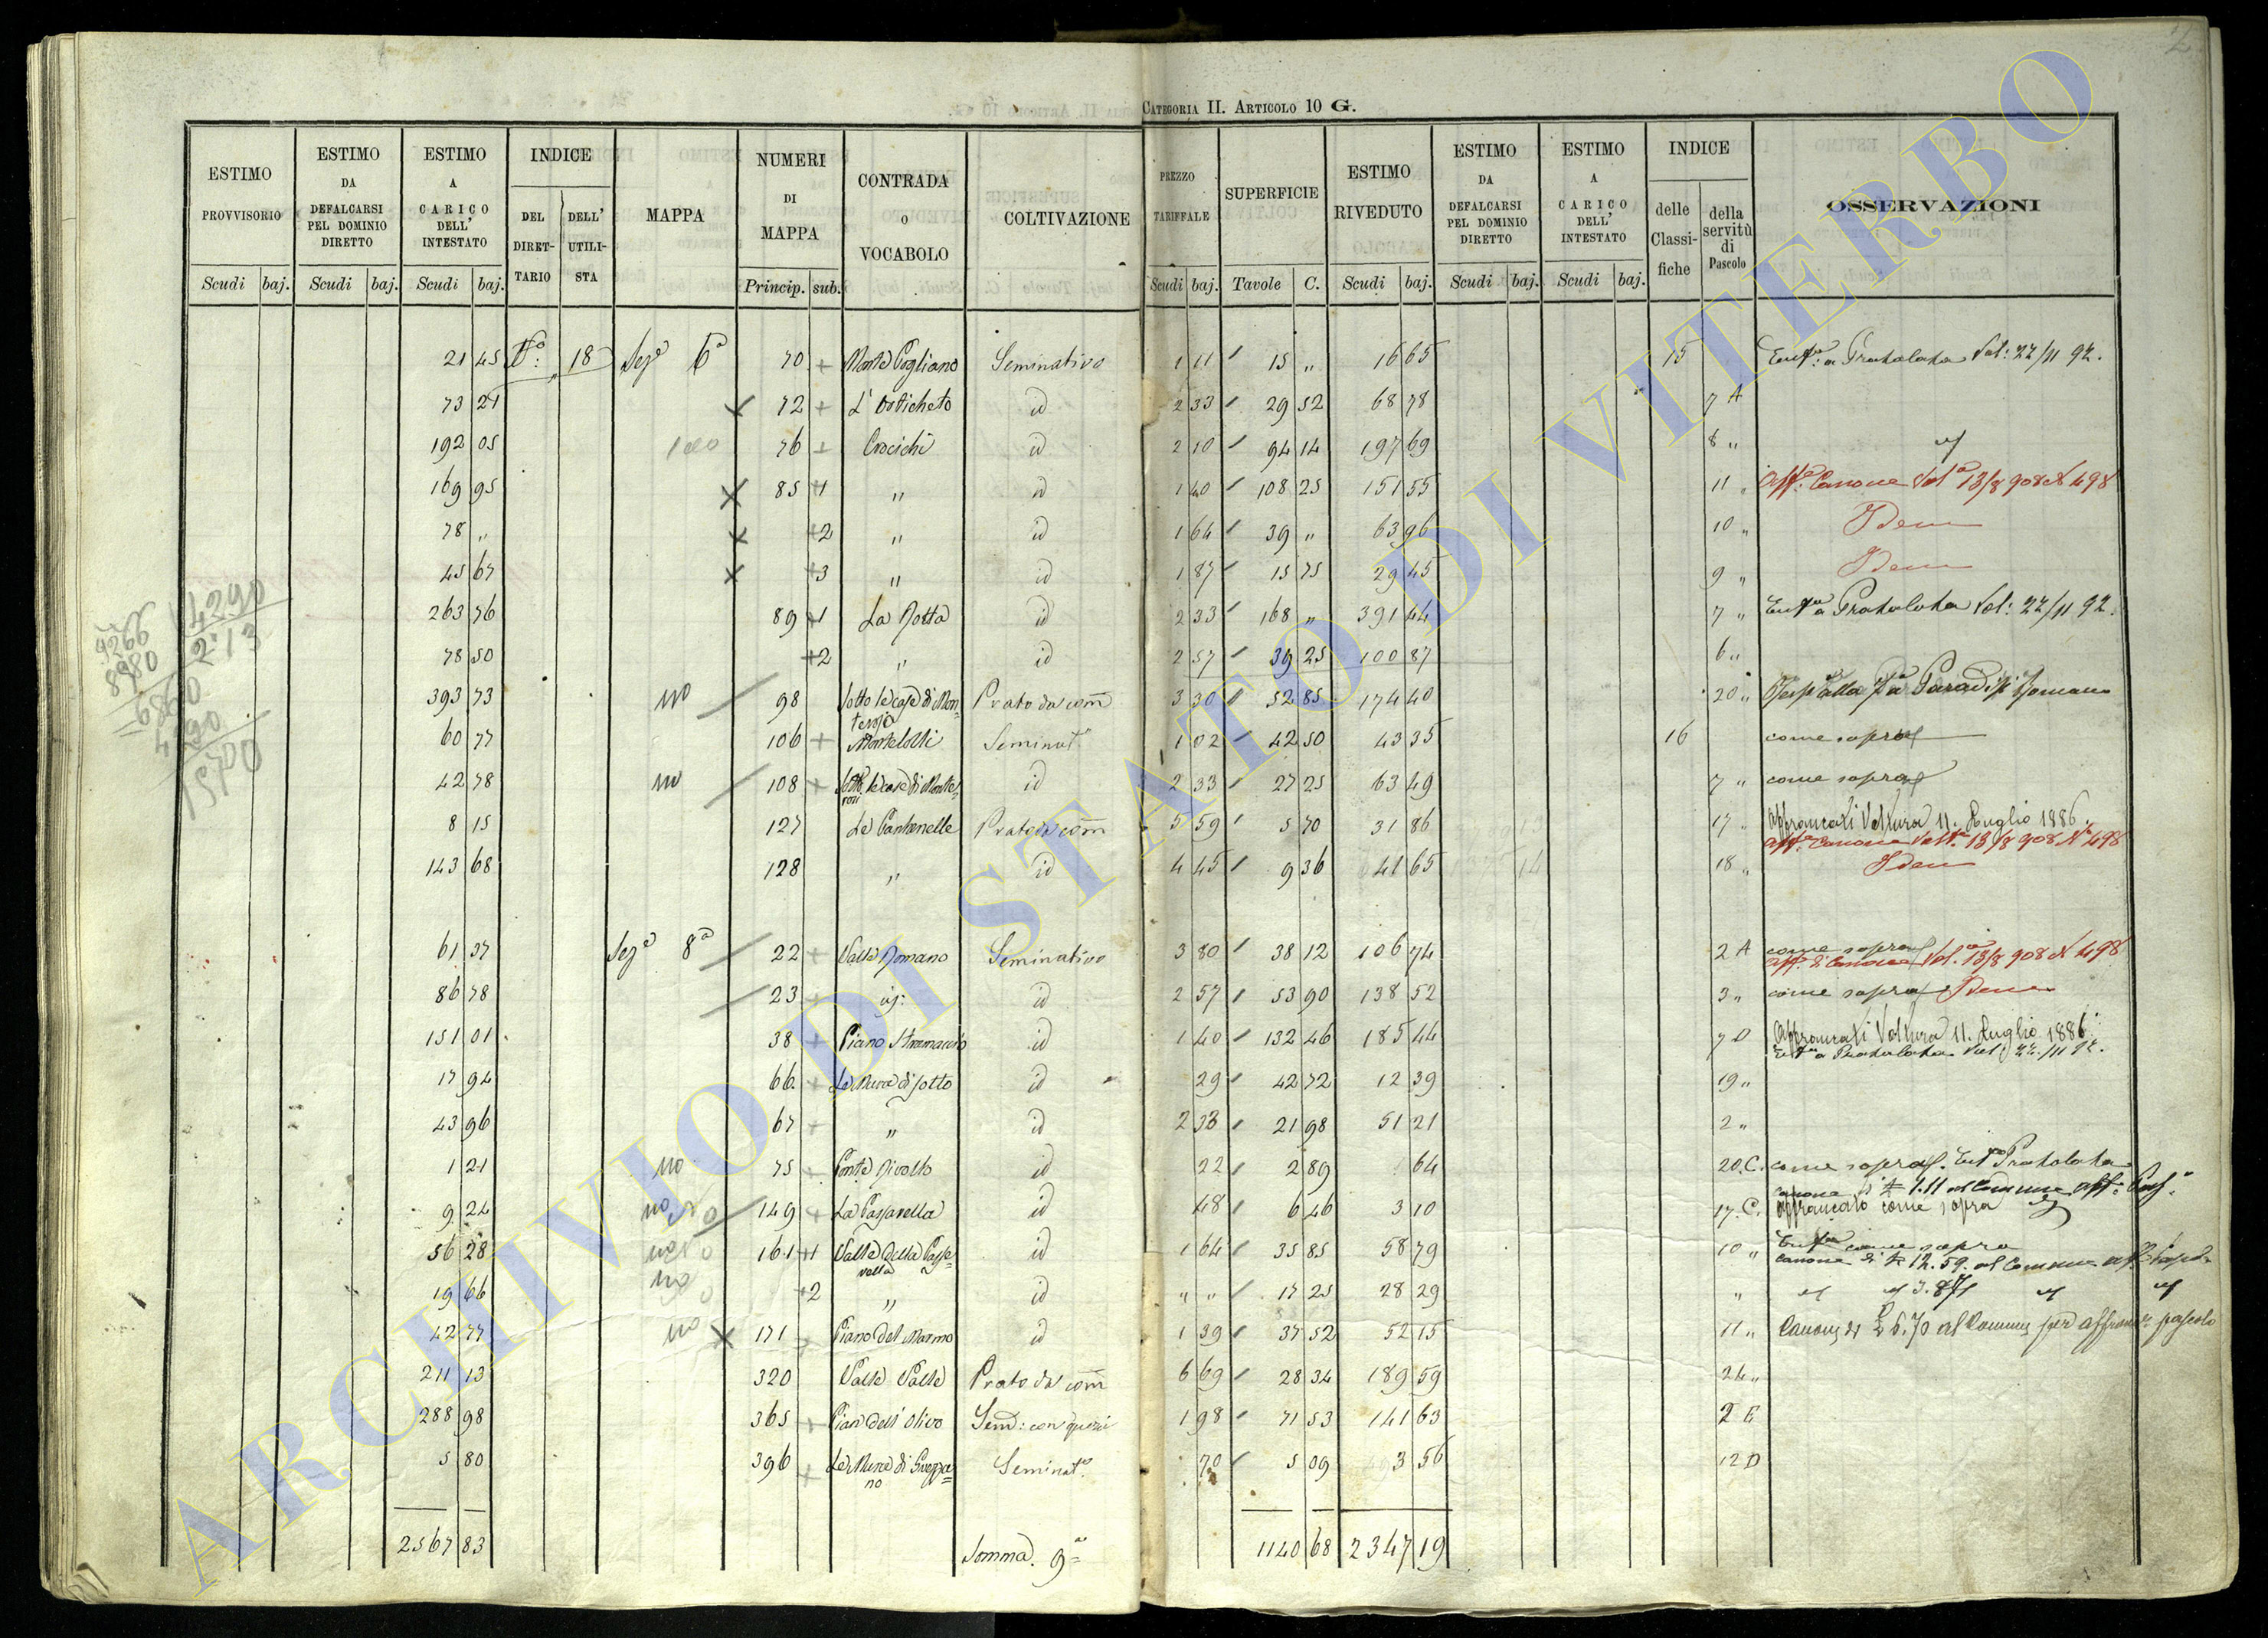 2
CATEGORIA II. ARTICOLO 10 G.
ESTIMO PROVVISORIO Scudi baj.
ESTIMO DA DEFALCARSI PEL DOMINIO DIRETTO Scudi baj.
ESTIMO A CARICO DELL' INTESTATO Scudi baj.
INDICE DEL DIRET-TARIO DELL' UTILI-STA
MAPPA
NUMERI DI MAPPA Princip. sub.
CONTRADA O VOCABOLO
COLTIVAZIONE
PREZZO TARIFFALE Scudi baj.
SUPERFICIE Tavole C.
ESTIMO RIVEDUTO Scudi baj.
ESTIMO DA DEFALCARSI PEL DOMINIO DIRETTO Scudi baj.
ESTIMO A CARICO DELL' INTESTATO Scudi baj.
INDICE delle Classi-fiche della servitù di Pascolo
OSSERVAZIONI
21 45 18 Sez.e 6a 70 + Monte Fogliano Seminativo 1 11 15 " 16 65 15 Enfa: a Pratolata Vol: 22/11 92.
73 21 72 + id 2 33 29 52 68 78 7 A
192 05 76 + Crocichi id 2 10 94 14 197 69 8 "
169 95 85 +1 " id 1 40 108 25 151 55 11 " Affe. Canone Vola 13/8 908 N 498
78 " +2 " id 1 64 39 " 63 96 10 " Idem
45 67 +3 " id 1 87 15 75 29 45 9 " Idem
263 76 89 +1 La id 2 33 168 " 391 44 7 " Enfa a Pratolata Vol: 22/11 92.
78 50 +2 " id 2 57 39 25 100 87 6 "
393 73 no 98 Sotto le case di Mon-terosi Prato da com 3 30 52 85 174 40 20 "
60 77 106 + Seminat. 1 02 42 50 43 35 16 come sopra
42 78 no 108 + Sotto le case di Monte-rosi id 2 33 27 25 63 49 7 " come sopra
8 15 127 Le Pantanelle Prato da com 5 59 5 70 31 86 17 " Affrancati Voltura 11. Luglio 1886.
Affe. Canone Volta. 13/8 908 N 498
143 68 128 " id 4 45 9 36 41 65 18 " Idem
61 37 Sez.e 8a 22 + Valle Romano Seminativo 3 80 38 12 106 74 2 A come sopra
Affe. di Canone Vol. 13/8 908 N 498
86 78 23 id 2 57 53 90 138 52 3 " come sopra Idem
151 01 38 + Piano id 1 40 132 46 185 44 7 D Affrancati Voltura 11. Luglio 1886.
Enfa a Pratolata Vol: 22/11 92.
17 94 66 + Le Mura di sotto id 29 42 72 12 39 19 "
43 96 67 + " id 2 33 21 98 51 21 2 "
1 21 no 75 + Ponte Rivolto id 22 2 89 64 20.C. come sopra. Enfa Pratolata
canone di £ 1.11 al Comune
9 24 no 149 + La Passarella id 48 6 46 3 10 17.C. affrancato come sopra
56 28 161 +1 Valle della Passe=rella id 1 64 35 85 58 79 10 " Enfa come sopra
canone di £ 12.59. al Comune
19 66 no +2 " id " " 17 25 28 29 " 3.87
42 77 no 171 Piano del Marmo id 1 39 37 52 52 15 11 " Canone di £ 6.70 al Comune per affranc. pascolo
211 13 320 Valle Valle Prato da com 6 69 28 34 189 59 24 "
288 98 365 + Pian dell'Olivo Sem: con querci 1 98 71 53 141 63 2 E
5 80 396 + Le Mura di no Seminat. 70 5 09 3 56 12 D
2567 83 Somma. 9a 1140 68 2347 19
14290
213
9266
8980
15700
ARCHIVIO DI STATO DI VITERBO